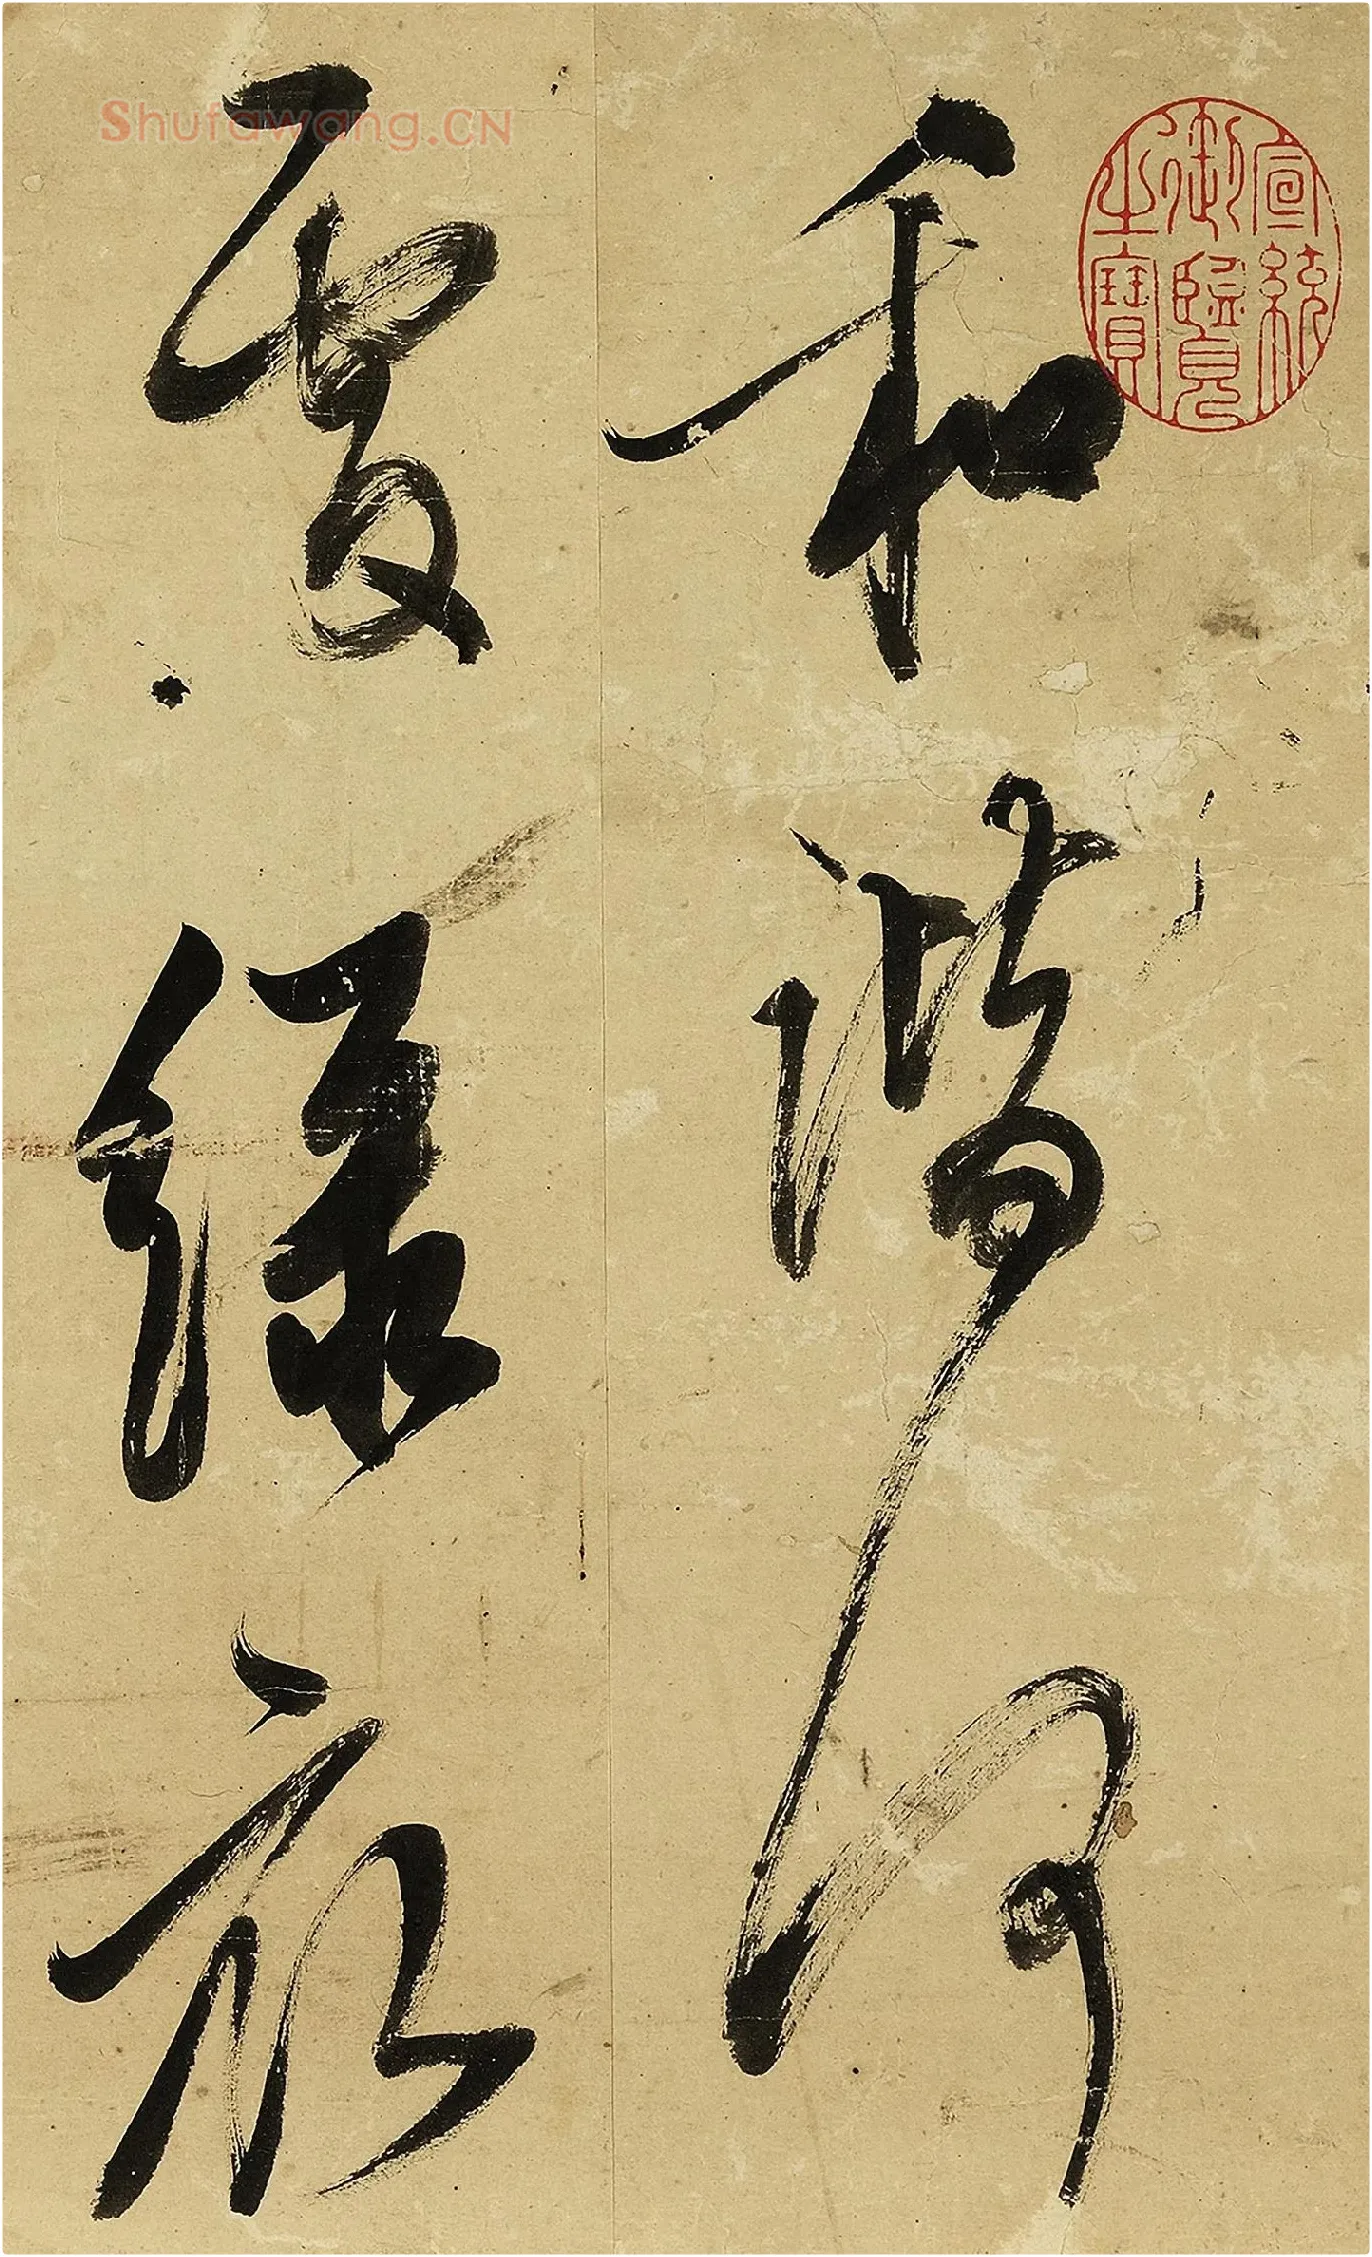 和諧何
處綠衣
宣統
御覽
之寶
Shufawang.CN